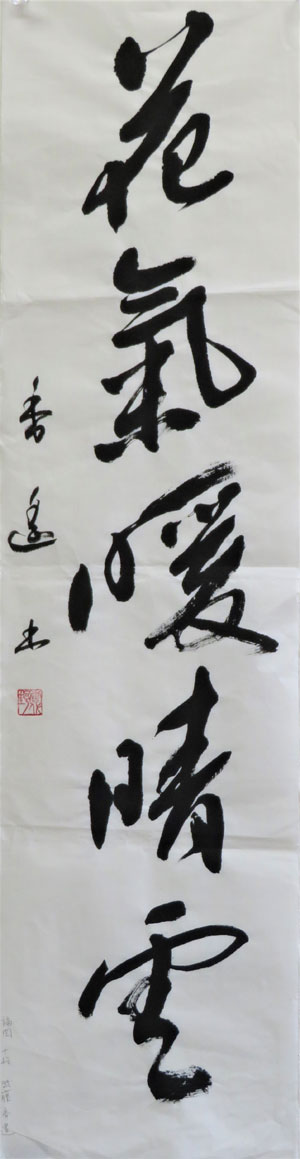 花氣暖晴雲
香遙書